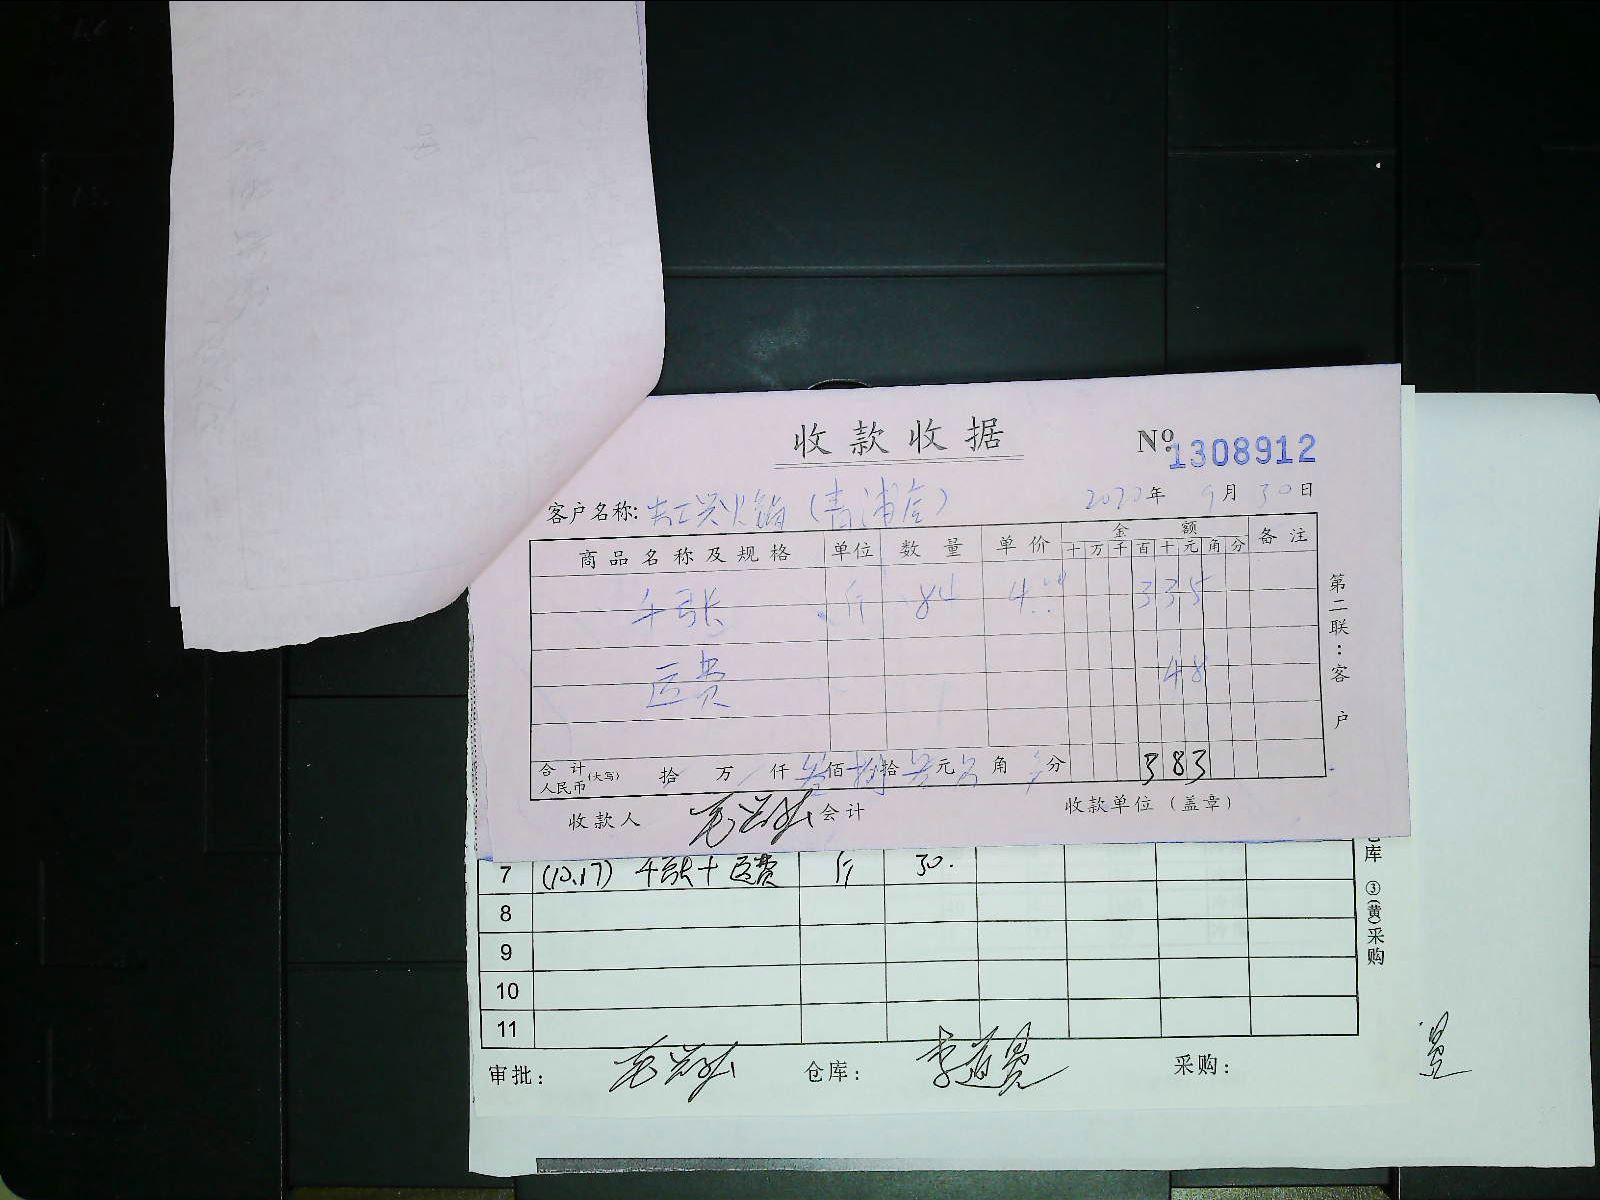 收款收据
No. 1308912
客户名称: 火锅(青浦店) 年 9月30日
商品名称及规格 单位 数量 单价 金额 备注
十 万 千 百 十 元 角 分
千张 斤 84 4. 335
运费 48
合计人民币(大写) 拾 万 仟 叁佰捌拾叁元 角 分 383
收款人 会计 收款单位(盖章)
第二联:客户
7 (10.17) 千张+运费 斤 30.
8
9
10
11
库 ③(黄)采购
审批: 仓库: 采购: